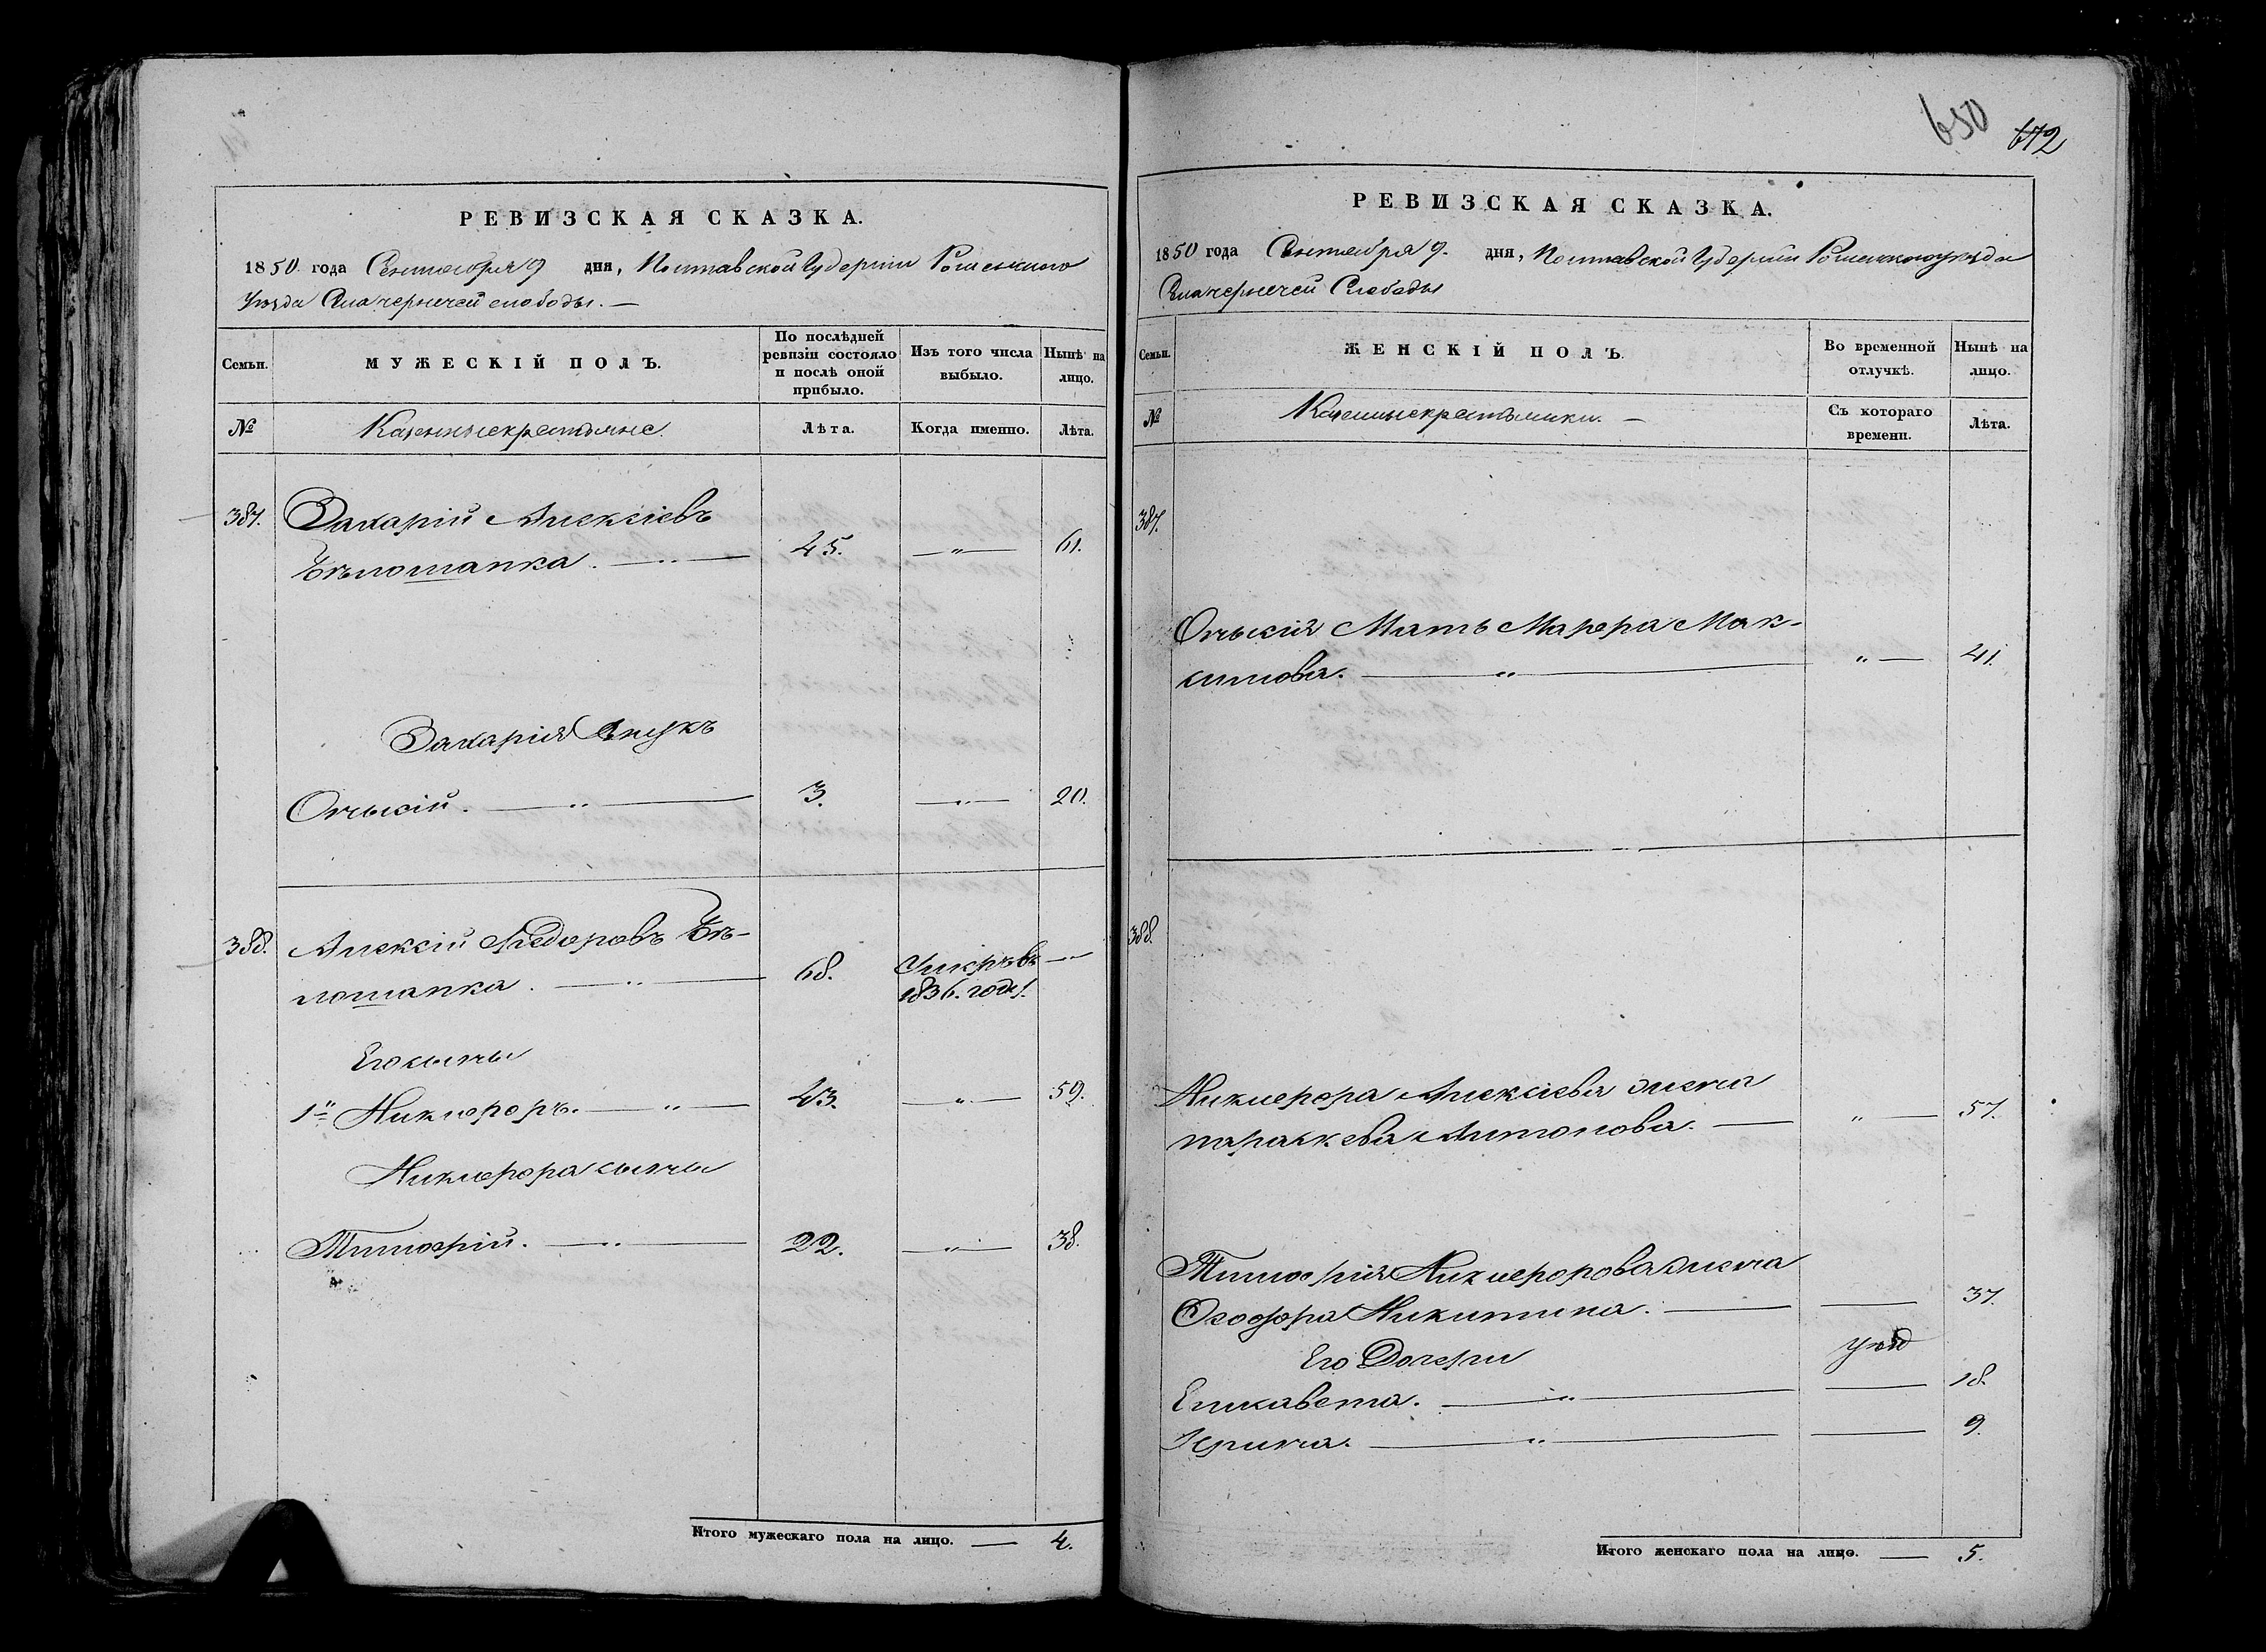 650 672
РЕВИЗСКАЯ СКАЗКА.
1850 года Сентября 9 дня, Полтавской Губерніи Роменского
Уѣзда Села чернечей слободы. —
Семьи. МУЖЕСКІЙ ПОЛЪ. По послѣдней ревизіи состояло и послѣ оной прибыло. Изъ того числа выбыло. Нынѣ на лицо.
№ Казенные крестьяне. Лѣта. Когда именно. Лѣта.
387. Захарій Алексіевъ
Бѣлошапка. — 45. —„— 61.
Захарія Внукъ
Онисій. —„— 3. —„— 20.
388. Алексій Федоровъ Бѣ-
лошапка. —„— 68. Умръ въ —
1836. годѣ.
Его сыны
1й Никифоръ. —„— 43. —„— 59.
Никифора сыны
Тимофій. —„— 22. —„— 38.
Итого мужескаго пола на лицо. — 4.
РЕВИЗСКАЯ СКАЗКА.
1850 года Сентября 9. дня, Полтавской Губерніи Роменского уѣзда
Села чернечей Слободы
Семьи. ЖЕНСКІЙ ПОЛЪ. Во временной отлучкѣ. Нынѣ на лицо.
№ Казенные крестьянки. — Съ котораго времени. Лѣта.
387.
Онисія Мать Марфа Мак-
симова. —„— „— 41.
388.
Никифора Алексіева жена
параскева Антонова. — „— 57.
Тимофія Никифорова жена
Феодора Никитина. — — 37.
Его Дочери
Елисавета. —„— — 18.
Ирина. —„— — 9.
Итого женскаго пола на лицо. — 5.